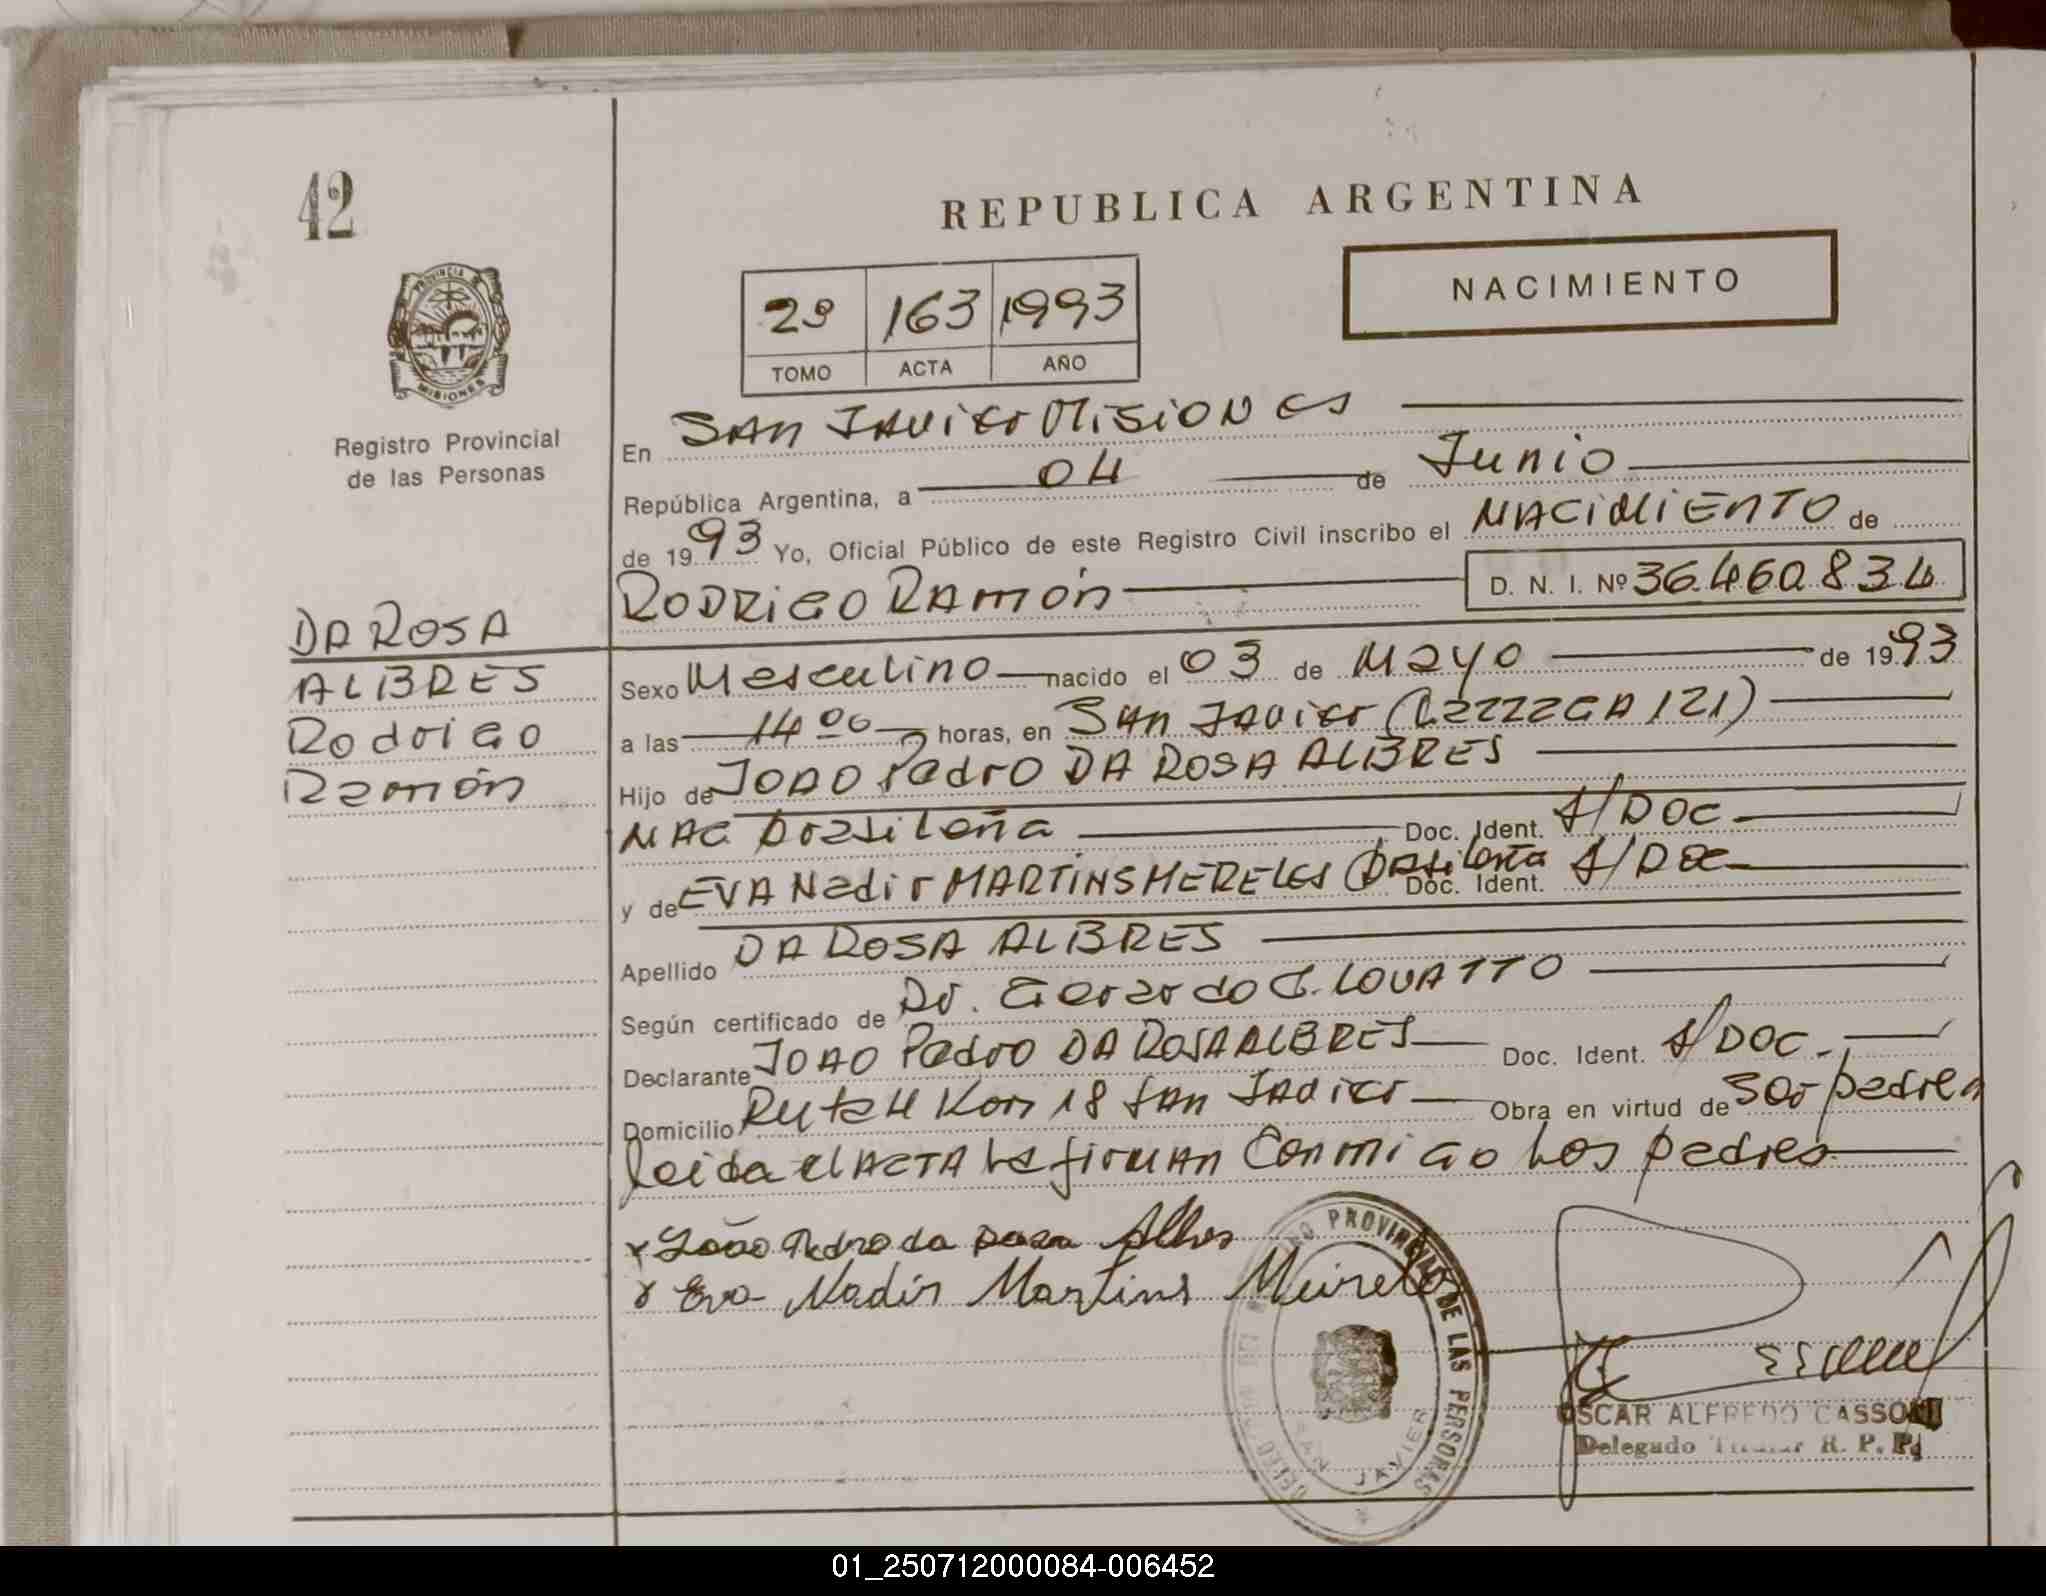 42
REPUBLICA ARGENTINA
NACIMIENTO
163 1993
TOMO ACTA AÑO
PROVINCIA DE
MISIONES
Registro Provincial
de las Personas
En SAN JAVIER MISIONES
República Argentina, a 04 de Junio
de 1993 Yo, Oficial Público de este Registro Civil inscribo el NACIMIENTO de
RODRIGO RAMÓN D. N. I. Nº 36.460.834
DA ROSA
ALBRES
Rodrigo
Ramón
Sexo Masculino nacido el 03 de Mayo de 1993
a las 14 00 horas, en San Javier (L. 121)
Hijo de JOAO Pedro DA ROSA ALBRES
NAC brasileña Doc. Ident. S/DOC
y de EVA Nadir MARTINS MERELES brasileña Doc. Ident. S/DOC
Apellido DA ROSA ALBRES
Según certificado de Dr. Gerardo C. LOVATTO
Declarante JOAO Pedro DA ROSA ALBRES Doc. Ident. S/DOC.
Domicilio Ruta 4 Km 18 San Javier Obra en virtud de Ser padre
leida el ACTA la firman Conmigo Los padres
João Pedro da Albres
Eva Nadir Martins Meireles
REGISTRO PROVINCIAL DE LAS PERSONAS
SAN JAVIER
OSCAR ALFREDO CASSONI
Delegado Titular R. P. P.
01_250712000084-006452